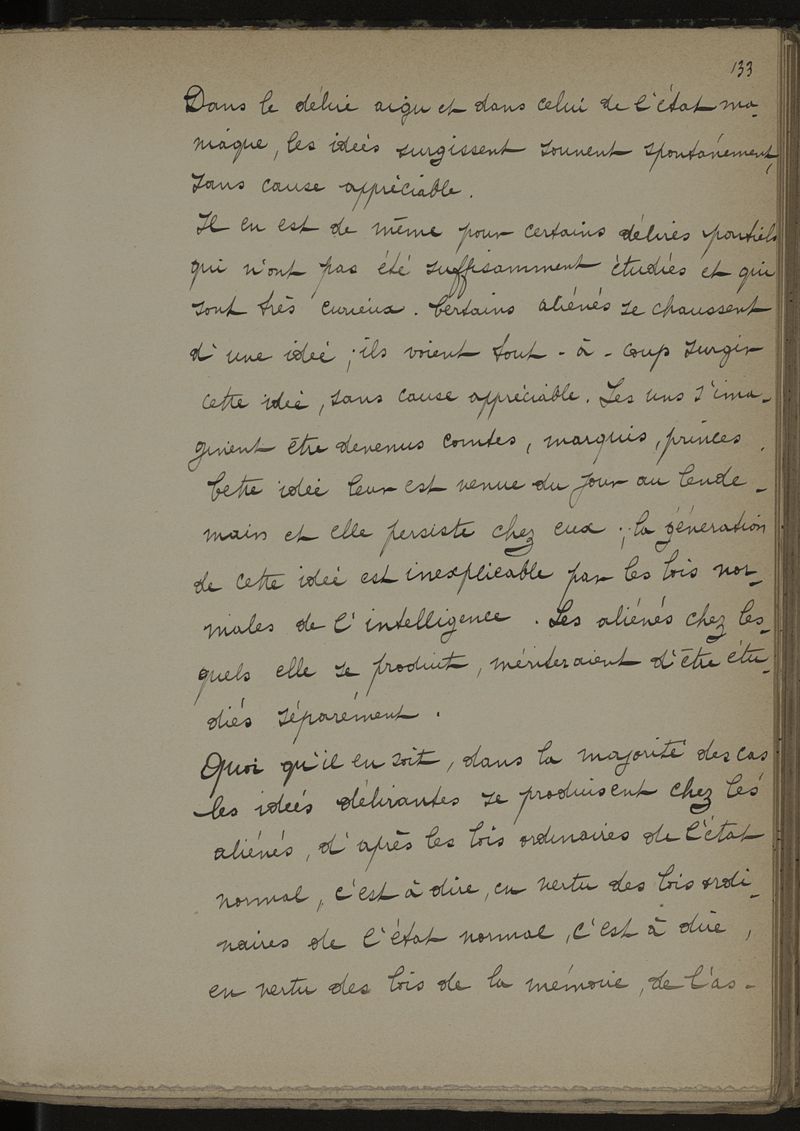 133
Dans le délire aigu et dans celui de l'état ma-
niaque, les idées surgissent souvent spontanément,
sans cause appréciable.
Il en est de même pour certains délires partiels
qui n'ont pas été suffisamment étudiés et qui
sont très curieux. Certains aliénés se chaussent
d'une idée ; ils voient tout-à-coup surgir
cette idée, sans cause appréciable. Les uns s'ima-
ginent être devenus comtes, marquis, princes.
Cette idée leur est venue du jour au lende-
main et elle persiste chez eux ; la génération
de cette idée est inexplicable par les lois nor-
males de l'intelligence. Les aliénés chez les-
quels elle se produit, mériteraient d'être étu-
diés séparément.
Quoi qu'il en soit, dans la majorité des cas
les idées délirantes se produisent chez les
aliénés, d'après les lois ordinaires de l'état
normal, c'est à dire, en vertu des lois ordi-
naires de l'état normal, c'est à dire,
en vertu des lois de la mémoire, de l'as-